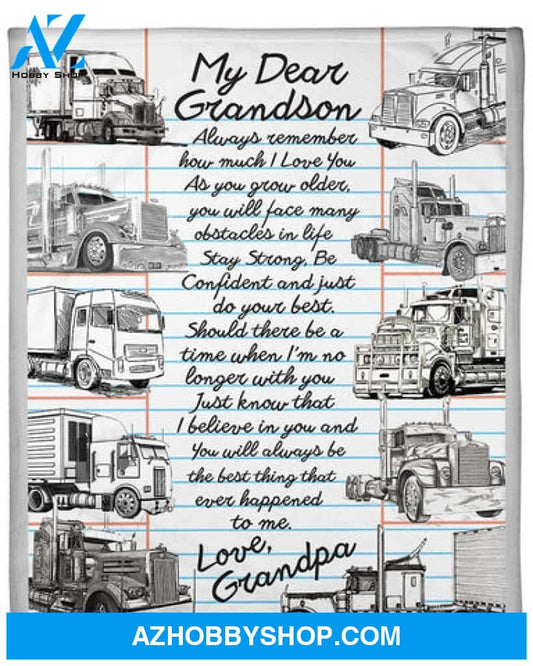 AZ
HOBBY SHOP
My Dear
Grandson
Always remember
how much I Love You
As you grow older,
you will face many
obstacles in life
Stay Strong, Be
Confident and just
do your best.
Should there be a
time when I'm no
longer with you
Just know that
I believe in you and
You will always be
the best thing that
ever happened
to me.
Love,
Grandpa
AZHOBBYSHOP.COM